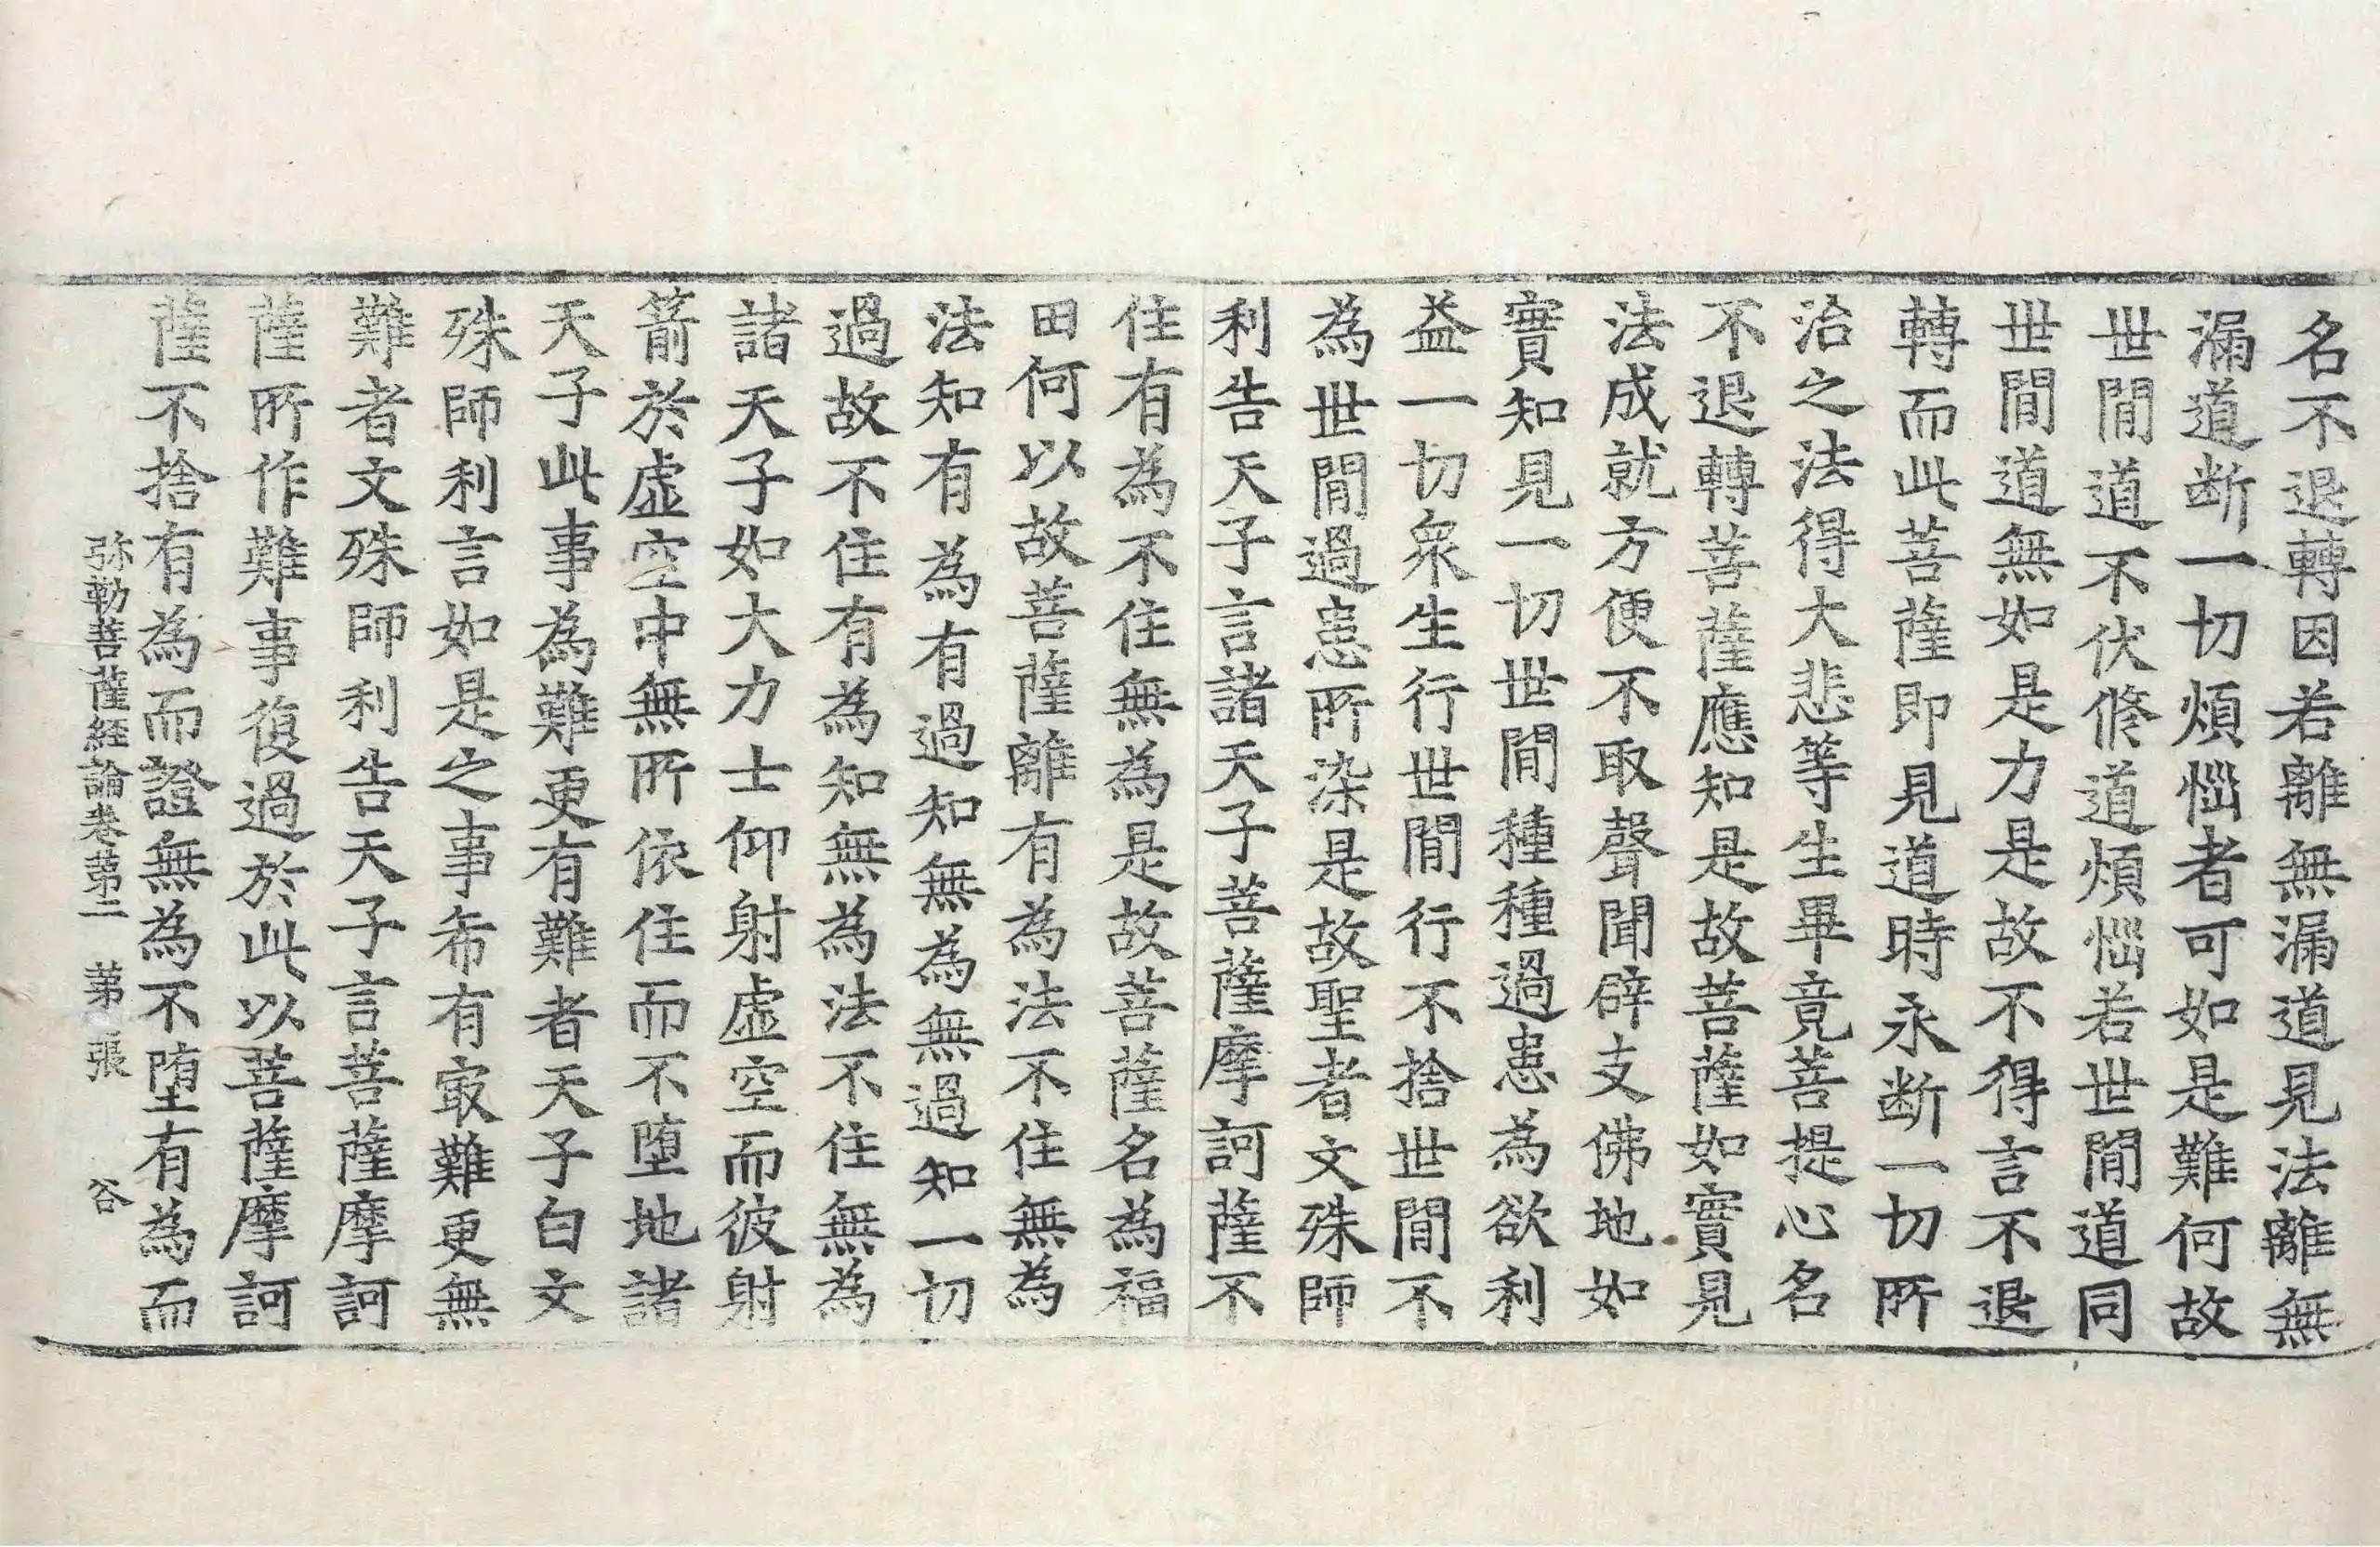 名不退轉因若離無漏道見法離無
漏道断一切煩惱者可如是難何故
世閒道不伏修道煩惱若世閒道同
世閒道無如是力是故不得言不退
轉而此菩薩即見道時永断一切所
治之法得大悲等生畢竟菩提心名
不退轉菩薩應知是故菩薩如實見
法成就方便不取聲聞辟支佛地如
實知見一切世間種種過患為欲利
益一切眾生行世間行不捨世間不
為世閒過患所染是故聖者文殊師
利告天子言諸天子菩薩摩訶薩不
住有為不住無為是故菩薩名為福
田何以故菩薩離有為法不住無為
法知有為有過知無為無過知一切
過故不住有為知無為法不住無為
諸天子如大力士仰射虛空而彼射
箭於虛空中無所依住而不墮地諸
天子此事為難更有難者天子白文
殊師利言如是之事希有㝡難更無
難者文殊師利告天子言菩薩摩訶
薩所作難事復過於此以菩薩摩訶
薩不捨有為而證無為不墮有為而
弥勒菩薩經論卷第二 第 張 谷